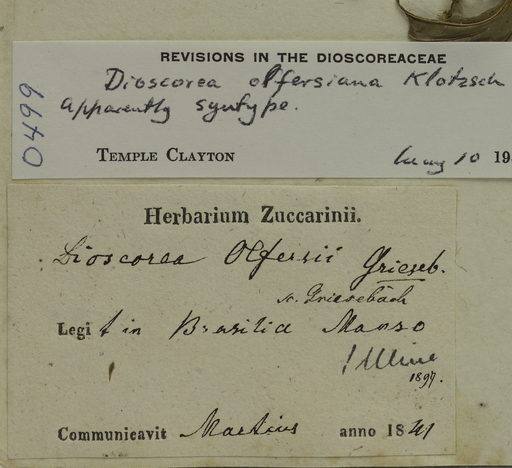 REVISIONS IN THE DIOSCOREACEAE
Dioscorea olfersiana Klotzsch
apparently syntype.
0499
TEMPLE CLAYTON May 10 19
Herbarium Zuccarinii.
Dioscorea Olfersii Griseb.
Griesebach
Legit in Brasilia Manso
! Uline
1897.
Communicavit Martius anno 1841